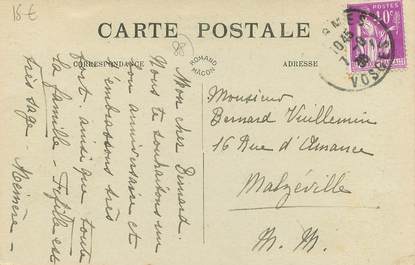 18 €
CARTE POSTALE
CORRESPONDANCE
ADRESSE
ROMAND
MACON
POSTES
40c
1045
VOSGES
Mon cher Bernard.
Nous te souhaitons un
bon anniversaire et
t'embrassons très
fort. ainsi que toute
la famille - Fifille est
très sage
Mémère -
Monsieur
Bernard Vuillemin
16 Rue d'Amance
Malzéville
M. M.